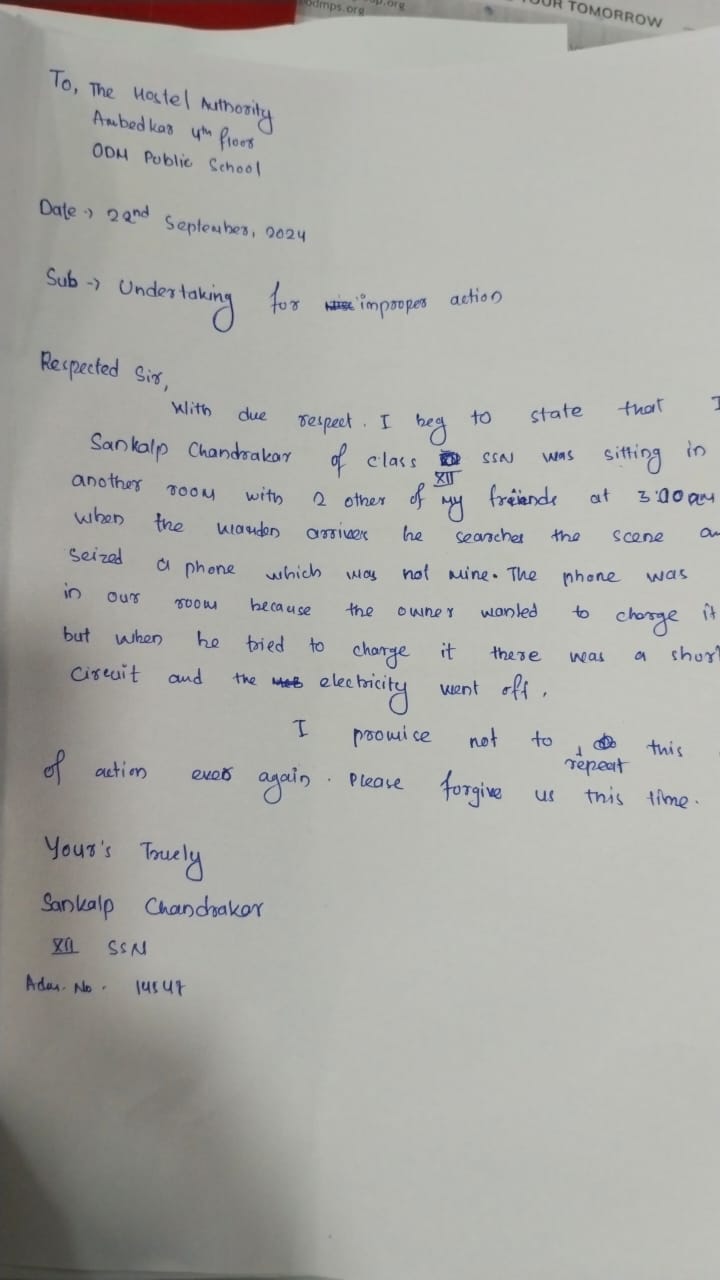 odmps.org
p.org
OUR TOMORROW
To, The Hostel Authority
Ambedkar 4th floor
ODM Public School
Date → 22nd September, 2024
Sub → Undertaking for improper action
Respected Sir,
With due respect. I beg to state that I
Sankalp Chandrakar of class XII SSN was sitting in
another room with 2 other of my freinds at 3:00 am
when the warden arrived he searches the scene
Seized a phone which was not mine. The phone was
in our room because the owner wanted to charge it
but when he tried to charge it there was a short
Circuit and the electricity went off.
I promise not to repeat this
of action ever again. Please forgive us this time.
Your's Truely
Sankalp Chandrakar
XII SSN
Adm. No. 14547